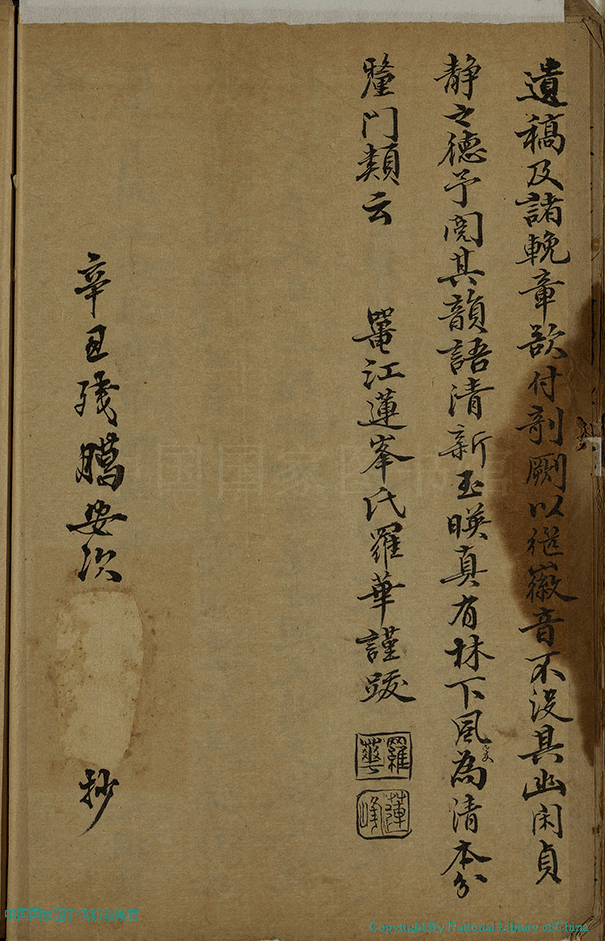 遺稿及諸輓章欲付剞劂以継徽音不没其幽闲貞
静之德予閲其韻語清新玉暎真有林下風爰為清本分
釐門類云　鼍江蓮峯氏羅華謹跋
羅華
蓮峰
辛丑残臈安次
抄
Copyright By National Library of China